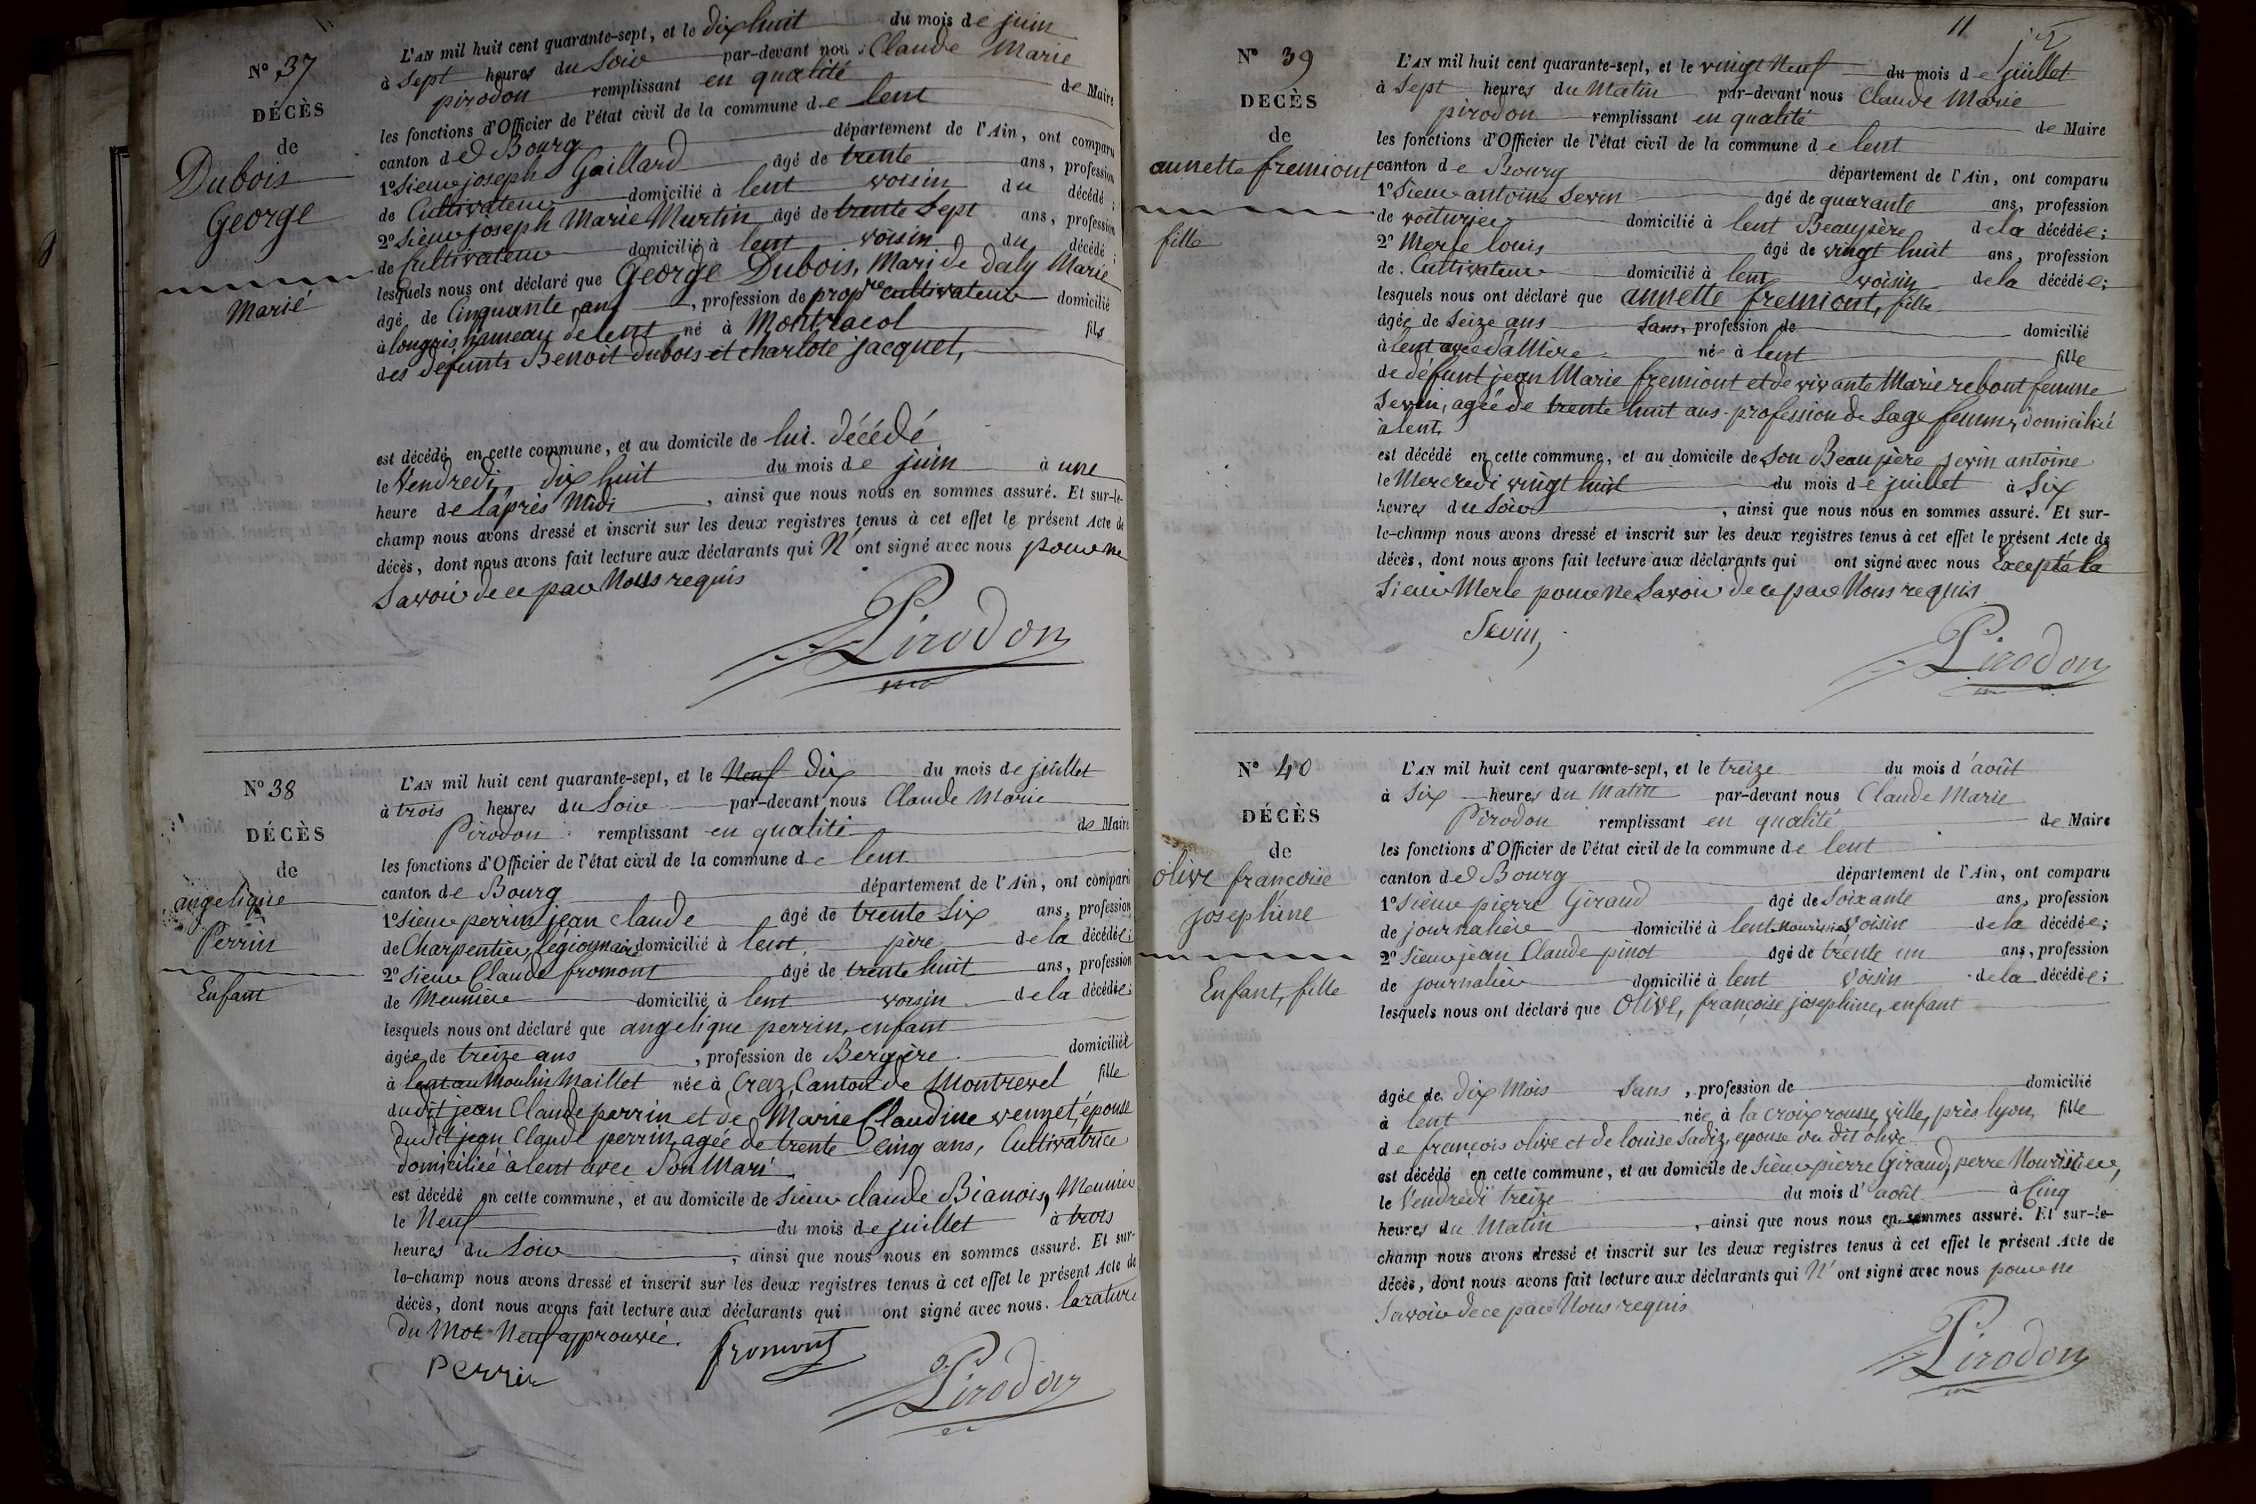 N° 37
DÉCÈS
de
Dubois
George
Marié
L'AN mil huit cent quarante-sept, et le dix huit du mois de juin
à Sept heures du Soir par-devant nous Claude Marie
pirodon remplissant en qualité de Maire
les fonctions d'Officier de l'état civil de la commune de lent
canton de Bourg département de l'Ain, ont comparu
1° Sieur joseph Gaillard âgé de trente ans, profession
de Cultivateur domicilié à lent voisin du décédé;
2° Sieur joseph Marie Murtin âgé de trente Sept ans, profession
de Cultivateur domicilié à lent voisin du décédé;
lesquels nous ont déclaré que George Dubois, Mari de Daly Marie
âgé de Cinquante ans, profession de propre Cultivateur domicilié
à longris, hameau de lent né à Montracol fils
des défunts Benoit Dubois et charlote jacquet,
est décédé en cette commune, et au domicile de lui décédé
le Vendredi, dix huit du mois de juin à une
heure de l'après Midi, ainsi que nous nous en sommes assuré. Et sur-le-
champ nous avons dressé et inscrit sur les deux registres tenus à cet effet le présent Acte de
décès, dont nous avons fait lecture aux déclarants qui N'ont signé avec nous pour ne
Savoir de ce par Nous requis
Pirodon
N° 38
DÉCÈS
de
angelique
Perrin
Enfant
L'AN mil huit cent quarante-sept, et le Neuf Dix du mois de juillet
à trois heures du Soir par-devant nous Claude Marie
Pirodon remplissant en qualité de Maire
les fonctions d'Officier de l'état civil de la commune de lent
canton de Bourg département de l'Ain, ont comparu
1° Sieur perrin jean claude âgé de trente Six ans, profession
de Charpentier, domicilié à lent, père de la décédée;
2° Sieur Claude fromont âgé de trente huit ans, profession
de Meunier domicilié à lent voisin de la décédée;
lesquels nous ont déclaré que angelique perrin, enfant
âgée de treize ans, profession de Bergère domiciliée
à lent au Moulin Maillet née à Craz Canton de Montrevel fille
dudit jean Claude perrin et de Marie Claudine vennet, épouse
dudit jean Claude perrin, agée de trente Cinq ans, Cultivatrice
domiciliée à lent avec Son Mari
est décédé en cette commune, et au domicile de Sieur claude Bianois, Meunier
le Neuf du mois de juillet à trois
heures du Soir, ainsi que nous nous en sommes assuré. Et sur-
le-champ nous avons dressé et inscrit sur les deux registres tenus à cet effet le présent Acte de
décès, dont nous avons fait lecture aux déclarants qui ont signé avec nous. la rature
du Mot Neuf approuvée.
Perrin fromont Pirodon
11
N° 39
DÉCÈS
de
annette fremiont
fille
L'AN mil huit cent quarante-sept, et le vingt Neuf du mois de juillet
à Sept heures du Matin par-devant nous Claude Marie
pirodon remplissant en qualité de Maire
les fonctions d'Officier de l'état civil de la commune de lent
canton de Bourg département de l'Ain, ont comparu
1° Sieur antoine Sevin âgé de quarante ans, profession
de voiturier domicilié à lent Beaupère de la décédée;
2° Merle louis âgé de vingt huit ans, profession
de Cultivateur domicilié à lent voisin de la décédée;
lesquels nous ont déclaré que annette fremiont, fille
âgée de Seize ans Sans, profession de domicilié
à lent avec Sa Mère née à lent fille
de défunt jean Marie fremiont et de vivante Marie rebont femme
Sevin, agée de trente huit ans profession de Sage femme, domicilié
à lent
est décédé en cette commune, et au domicile de Son Beaupère Sevin antoine
le Mercredi vingt huit du mois de juillet à Six
heures du Soir, ainsi que nous nous en sommes assuré. Et sur-
le-champ nous avons dressé et inscrit sur les deux registres tenus à cet effet le présent Acte de
décès, dont nous avons fait lecture aux déclarants qui ont signé avec nous Excepté le
Sieur Merle pour ne Savoir de ce par Nous requis
Sevin, Pirodon
N° 40
DÉCÈS
de
olive françoise
josephine
Enfant, fille
L'AN mil huit cent quarante-sept, et le treize du mois d'août
à Six heures du Matin par-devant nous Claude Marie
Pirodon remplissant en qualité de Maire
les fonctions d'Officier de l'état civil de la commune de lent
canton de Bourg département de l'Ain, ont comparu
1° Sieur pierre Giraud âgé de Soixante ans, profession
de journalier domicilié à lent voisin de la décédée;
2° Sieur jean Claude pinot âgé de trente un ans, profession
de journalier domicilié à lent Voisin de la décédée;
lesquels nous ont déclaré que Olive, françoise josephine, enfant
âgée de dix Mois Sans, profession de domicilié
à lent née à la croix rousse, ville, près lyon, fille
de françois olive et de louise Sadiz, epouse du dit olive
est décédé en cette commune, et au domicile de Sieur pierre Giraud, perre Nouricier,
le Vendredi treize du mois d'août à Cinq
heures du Matin, ainsi que nous nous en sommes assuré. Et sur-le-
champ nous avons dressé et inscrit sur les deux registres tenus à cet effet le présent Acte de
décès, dont nous avons fait lecture aux déclarants qui N'ont signé avec nous pour ne
Savoir de ce par Nous requis
Pirodon